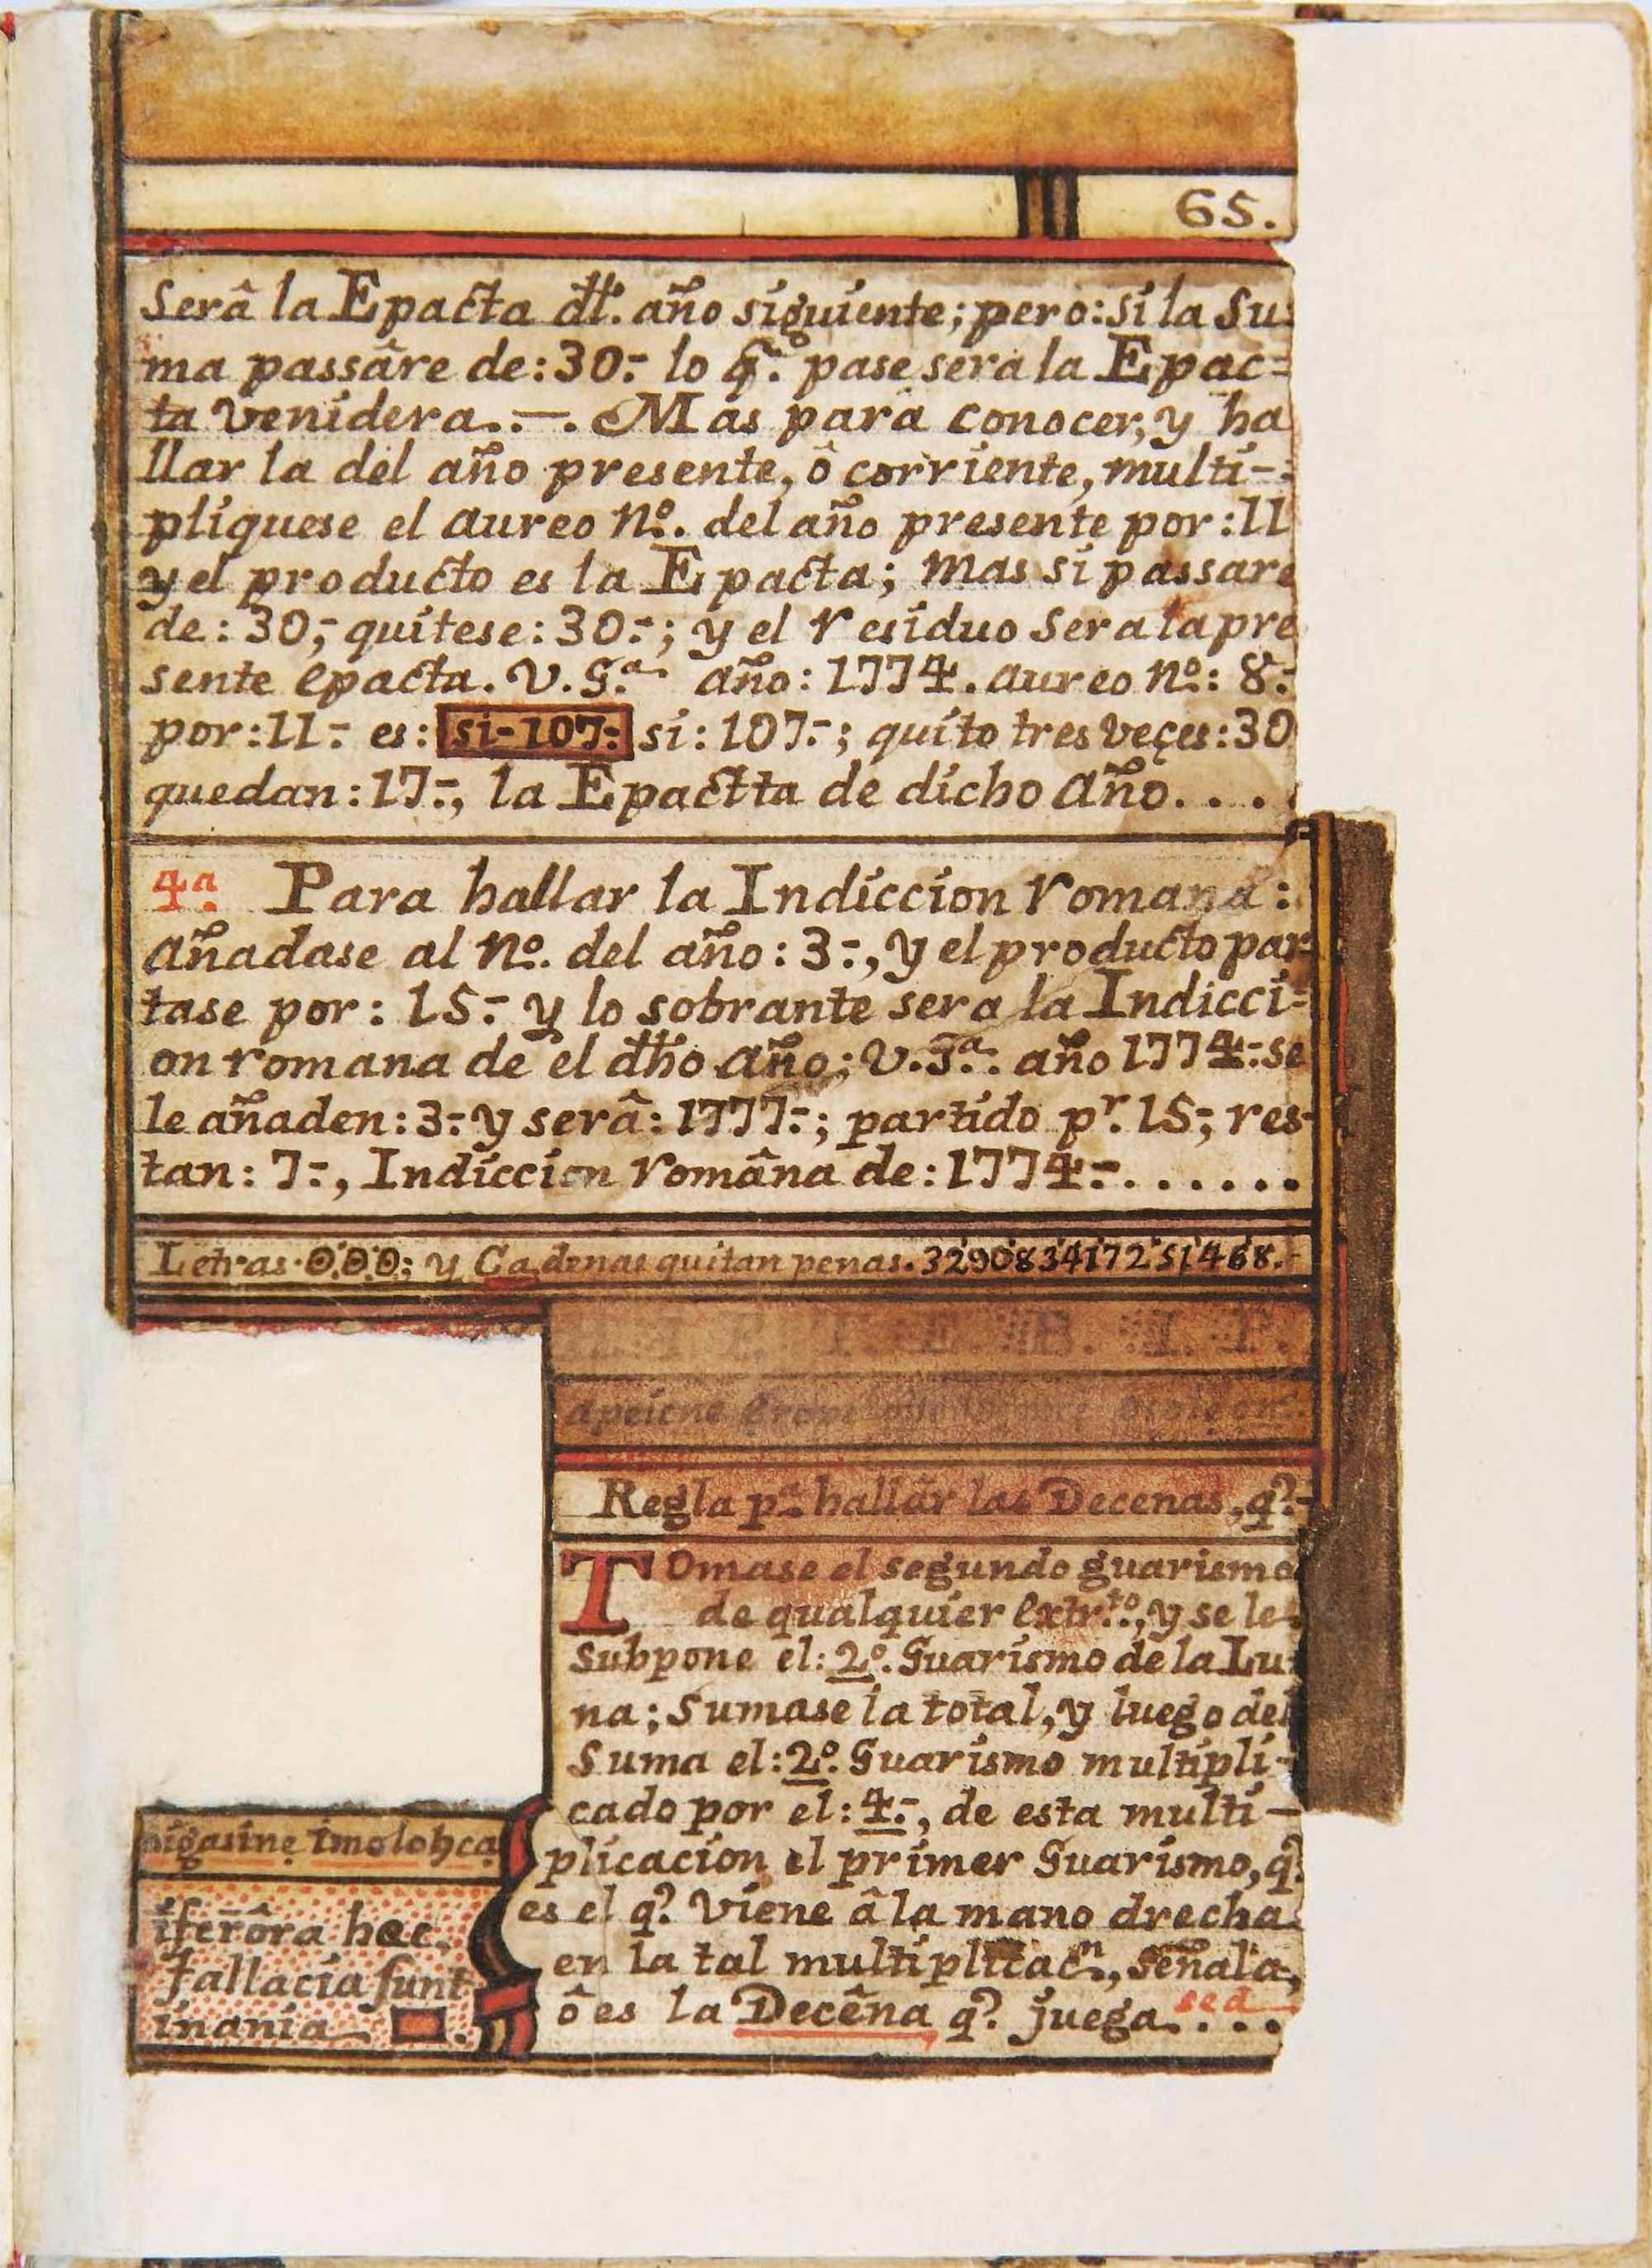 65.
Serâ la Epacta dtt.º año siguiente; pero: si la Su:
ma passâre de: 30:- lo q.º pase sera la Epac=
ta venidera..—. Mas para conocer, y ha
llar la del año presente, ô corriente, multi-:
pliquese el aureo Nº. del año presente por: 11
y el producto es la Epacta; mas si passare
de: 30,- quitese: 30:-; y el residuo Sera la pre
sente epacta. V.g.ª año: 1774. aureo Nº.: 8:-
por: 11:- es: si-107:- si: 107:-; quito tres veçes: 30
quedan: 17:-, la Epactta de dicho año....
4ª. Para hallar la Indiccion romana:
añadase al Nº. del año: 3:-, y el producto par-
tase por: 15:- y lo sobrante sera la Indicci=
on romana de el dho año; V.gª.: año 1774:- se
le añaden: 3:- y serâ: 1777:-; partido pr. 15,-; res-
tan: 7:-, Indiccion româna de: 1774:-......
Letras. ʘ.ʘ.ʘ; y Cadenas quitan penas. 329083417251468.-
Regla pª. hallâr las Decenas, q?-
Tomase el segundo guarismo
de qualquier extr.to., y se le
subpone el: 2º. Guarismo de la Lu:
na; Sumase la total, y luego del
Suma el: 2º. Guarismo multipli-
cado por el: 4:-, de esta multi-
plicacion el primer Guarismo, q?
es el q? viene â la mano drecha
en la tal multiplicacn., señala,
ô es la Decêna q? juega....
sed
nigasine imolohca
iferôra hæc.
fallacia sunt
inania